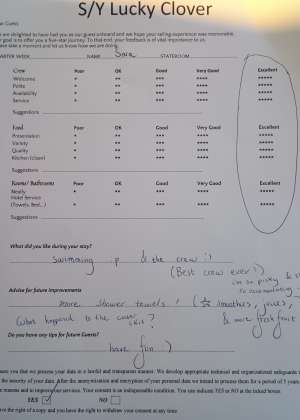 S/Y Lucky Clover
ar Guest
are delighted to have had you as our guest onboard and we hope your sailing experience was memorable.
r goal is to offer you a five-star journey. To that end, your feedback is of vital importance to us.
ase take a moment and let us know how are doing.
ARTER WEEK NAME Sara STATEROOM
Crew Poor OK Good Very Good Excellent
Welcome * ** *** **** *****
Polite * ** *** **** *****
Availability * ** *** **** *****
Service * ** *** **** *****
Suggestions
Food Poor OK Good Very Good Excellent
Presentation * ** *** **** *****
Variety * ** *** **** *****
Quality * ** *** **** *****
Kitchen (clean) * ** *** **** *****
Suggestions
Rooms/ Bathrooms Poor OK Good Very Good Excellent
Neatly * ** *** **** *****
Hotel Service
(Towels, Bed...) * ** *** **** *****
Suggestions
What did you like during your stay?
Swimming :p & the crew !!
(Best crew ever!)
i'm so picky &
so accomodating
Advise for future improvements
more shower towels! (☆ smoothies, juices,
what happened to the cause & more fresh fruit
this?
Do you have any tips for future Guests?
have fun :)
sure you that we process your data in a lawful and transparent manner. We develop appropriate technical and organizational safeguards
the security of your data. After the anonymization and encryption of your personal data we intend to process them for a period of 5 years
e reasons and to improve our services. Your consent is an indispensable condition. You can indicate YES or NO at the ticked boxes.
YES ✓ NO
ve the right of access and you have the right to withdraw your consent at any time